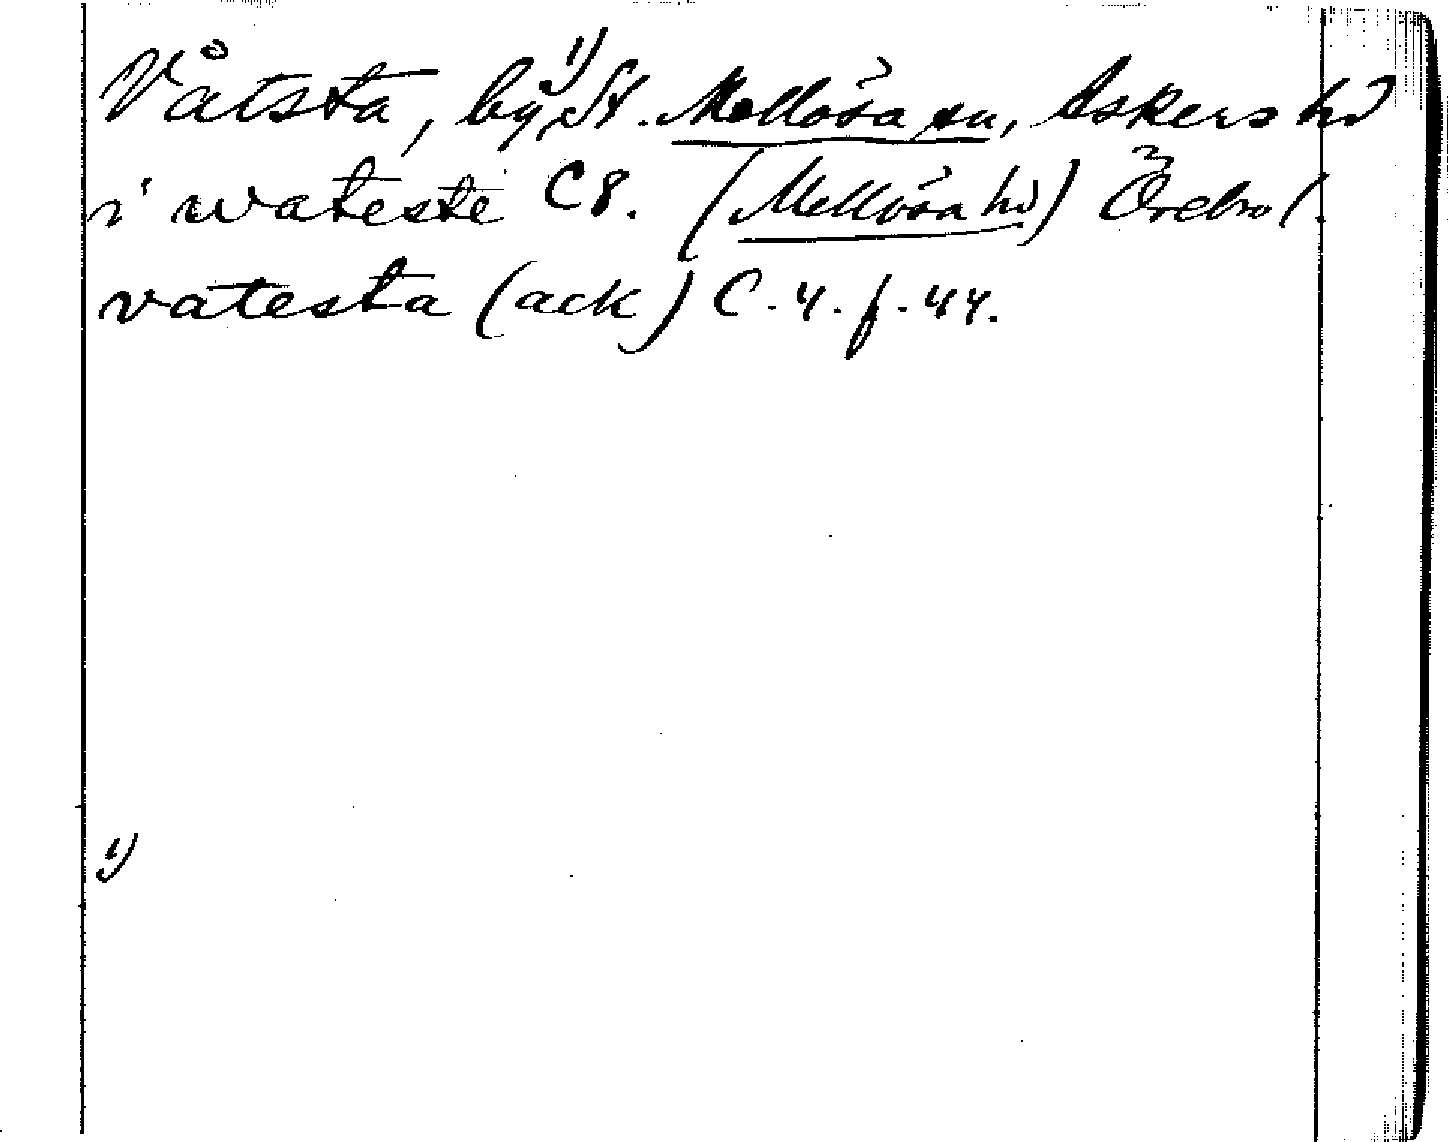 Våtsta, by,¹⁾ St. Mellösa sn, Askers hd
i wateste C8. (Mellösa hd) Örebro l.
vatesta (ack) C.4.f.44.
1)